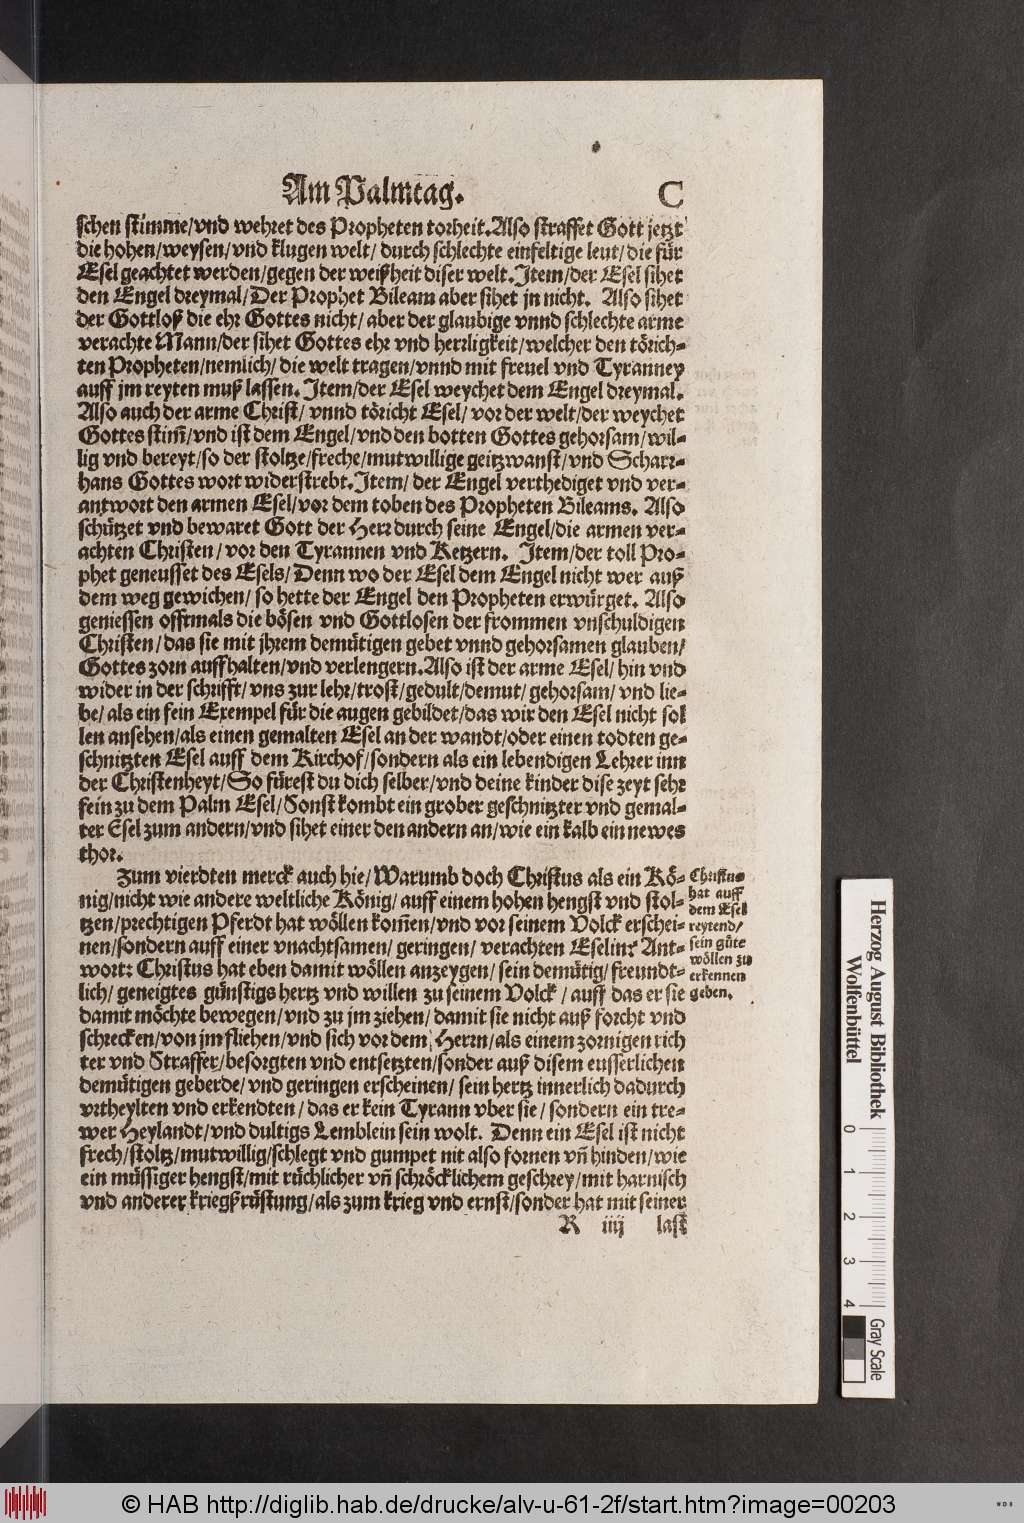 Am Palmtag. C
schen stimme/vnd wehret des Propheten torheit. Also straffet Gott jetzt
die hohen/weysen/vnd klugen welt/ durch schlechte einfeltige leut/die für
Esel geachtet werden/gegen der weißheit diser welt. Item/der Esel sihet
den Engel dreymal/Der Prophet Bileam aber sihet jn nicht. Also sihet
der Gottloß die ehr Gottes nicht/ aber der glaubige vnnd schlechte arme
verachte Mann/der sihet Gottes ehr vnd herrligkeit/welcher den törich-
ten Propheten/nemlich/ die welt tragen/vnnd mit freuel vnd Tyranney
auff jm reyten muß lassen. Item/der Esel weychet dem Engel dreymal.
Also auch der arme Christ/ vnnd töricht Esel/ vor der welt/der weychet
Gottes stim̃/vnd ist dem Engel/vnd den botten Gottes gehorsam/wil-
lig vnd bereyt/so der stoltze/freche/mutwillige geitzwanst/vnd Scharr-
hans Gottes wort widerstrebt. Item/ der Engel verthediget vnd ver-
antwort den armen Esel/vor dem toben des Propheten Bileams. Also
schützet vnd bewaret Gott der Herr durch seine Engel/die armen ver-
achten Christen/ vor den Tyrannen vnd Ketzern. Item/der toll Pro-
phet geneusset des Esels/ Denn wo der Esel dem Engel nicht wer auß
dem weg gewichen/ so hette der Engel den Propheten erwürget. Also
geniessen offtmals die bösen vnd Gottlosen der frommen vnschuldigen
Christen/das sie mit jhrem demütigen gebet vnnd gehorsamen glauben/
Gottes zorn auffhalten/vnd verlengern. Also ist der arme Esel/ hin vnd
wider in der schrifft/vns zur lehr/trost/gedult/demut/ gehorsam/ vnd lie-
be/ als ein fein Exempel für die augen gebildet/das wir den Esel nicht sol
len ansehen/als einen gemalten Esel an der wandt/oder einen todten ge-
schnitzten Esel auff dem Kirchof/sondern als ein lebendigen Lehrer inn
der Christenheyt/So fürest du dich selber/vnd deine kinder dise zeyt sehr
fein zu dem Palm Esel/Sonst kombt ein grober geschnitzter vnd gemal-
ter Esel zum andern/vnd sihet einer den andern an/wie ein kalb ein newes
thor.
Zum vierdten merck auch hie/Warumb doch Christus als ein Kö-
nig/nicht wie andere weltliche König/ auff einem hohen hengst vnd stol-
tzen/prechtigen Pferdt hat wöllen kom̃en/vnd vor seinem Volck erschei-
nen/sondern auff einer vnachtsamen/ geringen/ verachten Eselin? Ant-
wort: Christus hat eben damit wöllen anzeygen/ sein demütig/freundt-
lich/ geneigtes günstigs hertz vnd willen zu seinem Volck / auff das er sie
damit möchte bewegen/vnd zu jm ziehen/ damit sie nicht auß forcht vnd
schrecken/von jm fliehen/vnd sich vor dem Herrn/als einem zornigen rich
ter vnd Straffer/besorgten vnd entsetzten/sonder auß disem eusserlichen
demütigen geberde/ vnd geringen erscheinen/ sein hertz innerlich dadurch
vrtheylten vnd erkendten/ das er kein Tyrann vber sie/ sondern ein tre-
wer Heylandt/vnd dultigs Lemblein sein wolt. Denn ein Esel ist nicht
frech/stoltz/mutwillig/schlegt vnd gumpet nit also fornen vñ hinden/wie
ein müssiger hengst/mit rüchlicher vñ schröcklichem geschrey/mit harnisch
vnd anderer kriegßrüstung/als zum krieg vnd ernst/sonder hat mit seiner
R iiij last
Christus
hat auff
dem Esel
reytend/
sein güte
wöllen zu
erkennen
geben.
Herzog August Bibliothek
Wolfenbüttel
0 1 2 3 4
Gray Scale
© HAB http://diglib.hab.de/drucke/alv-u-61-2f/start.htm?image=00203